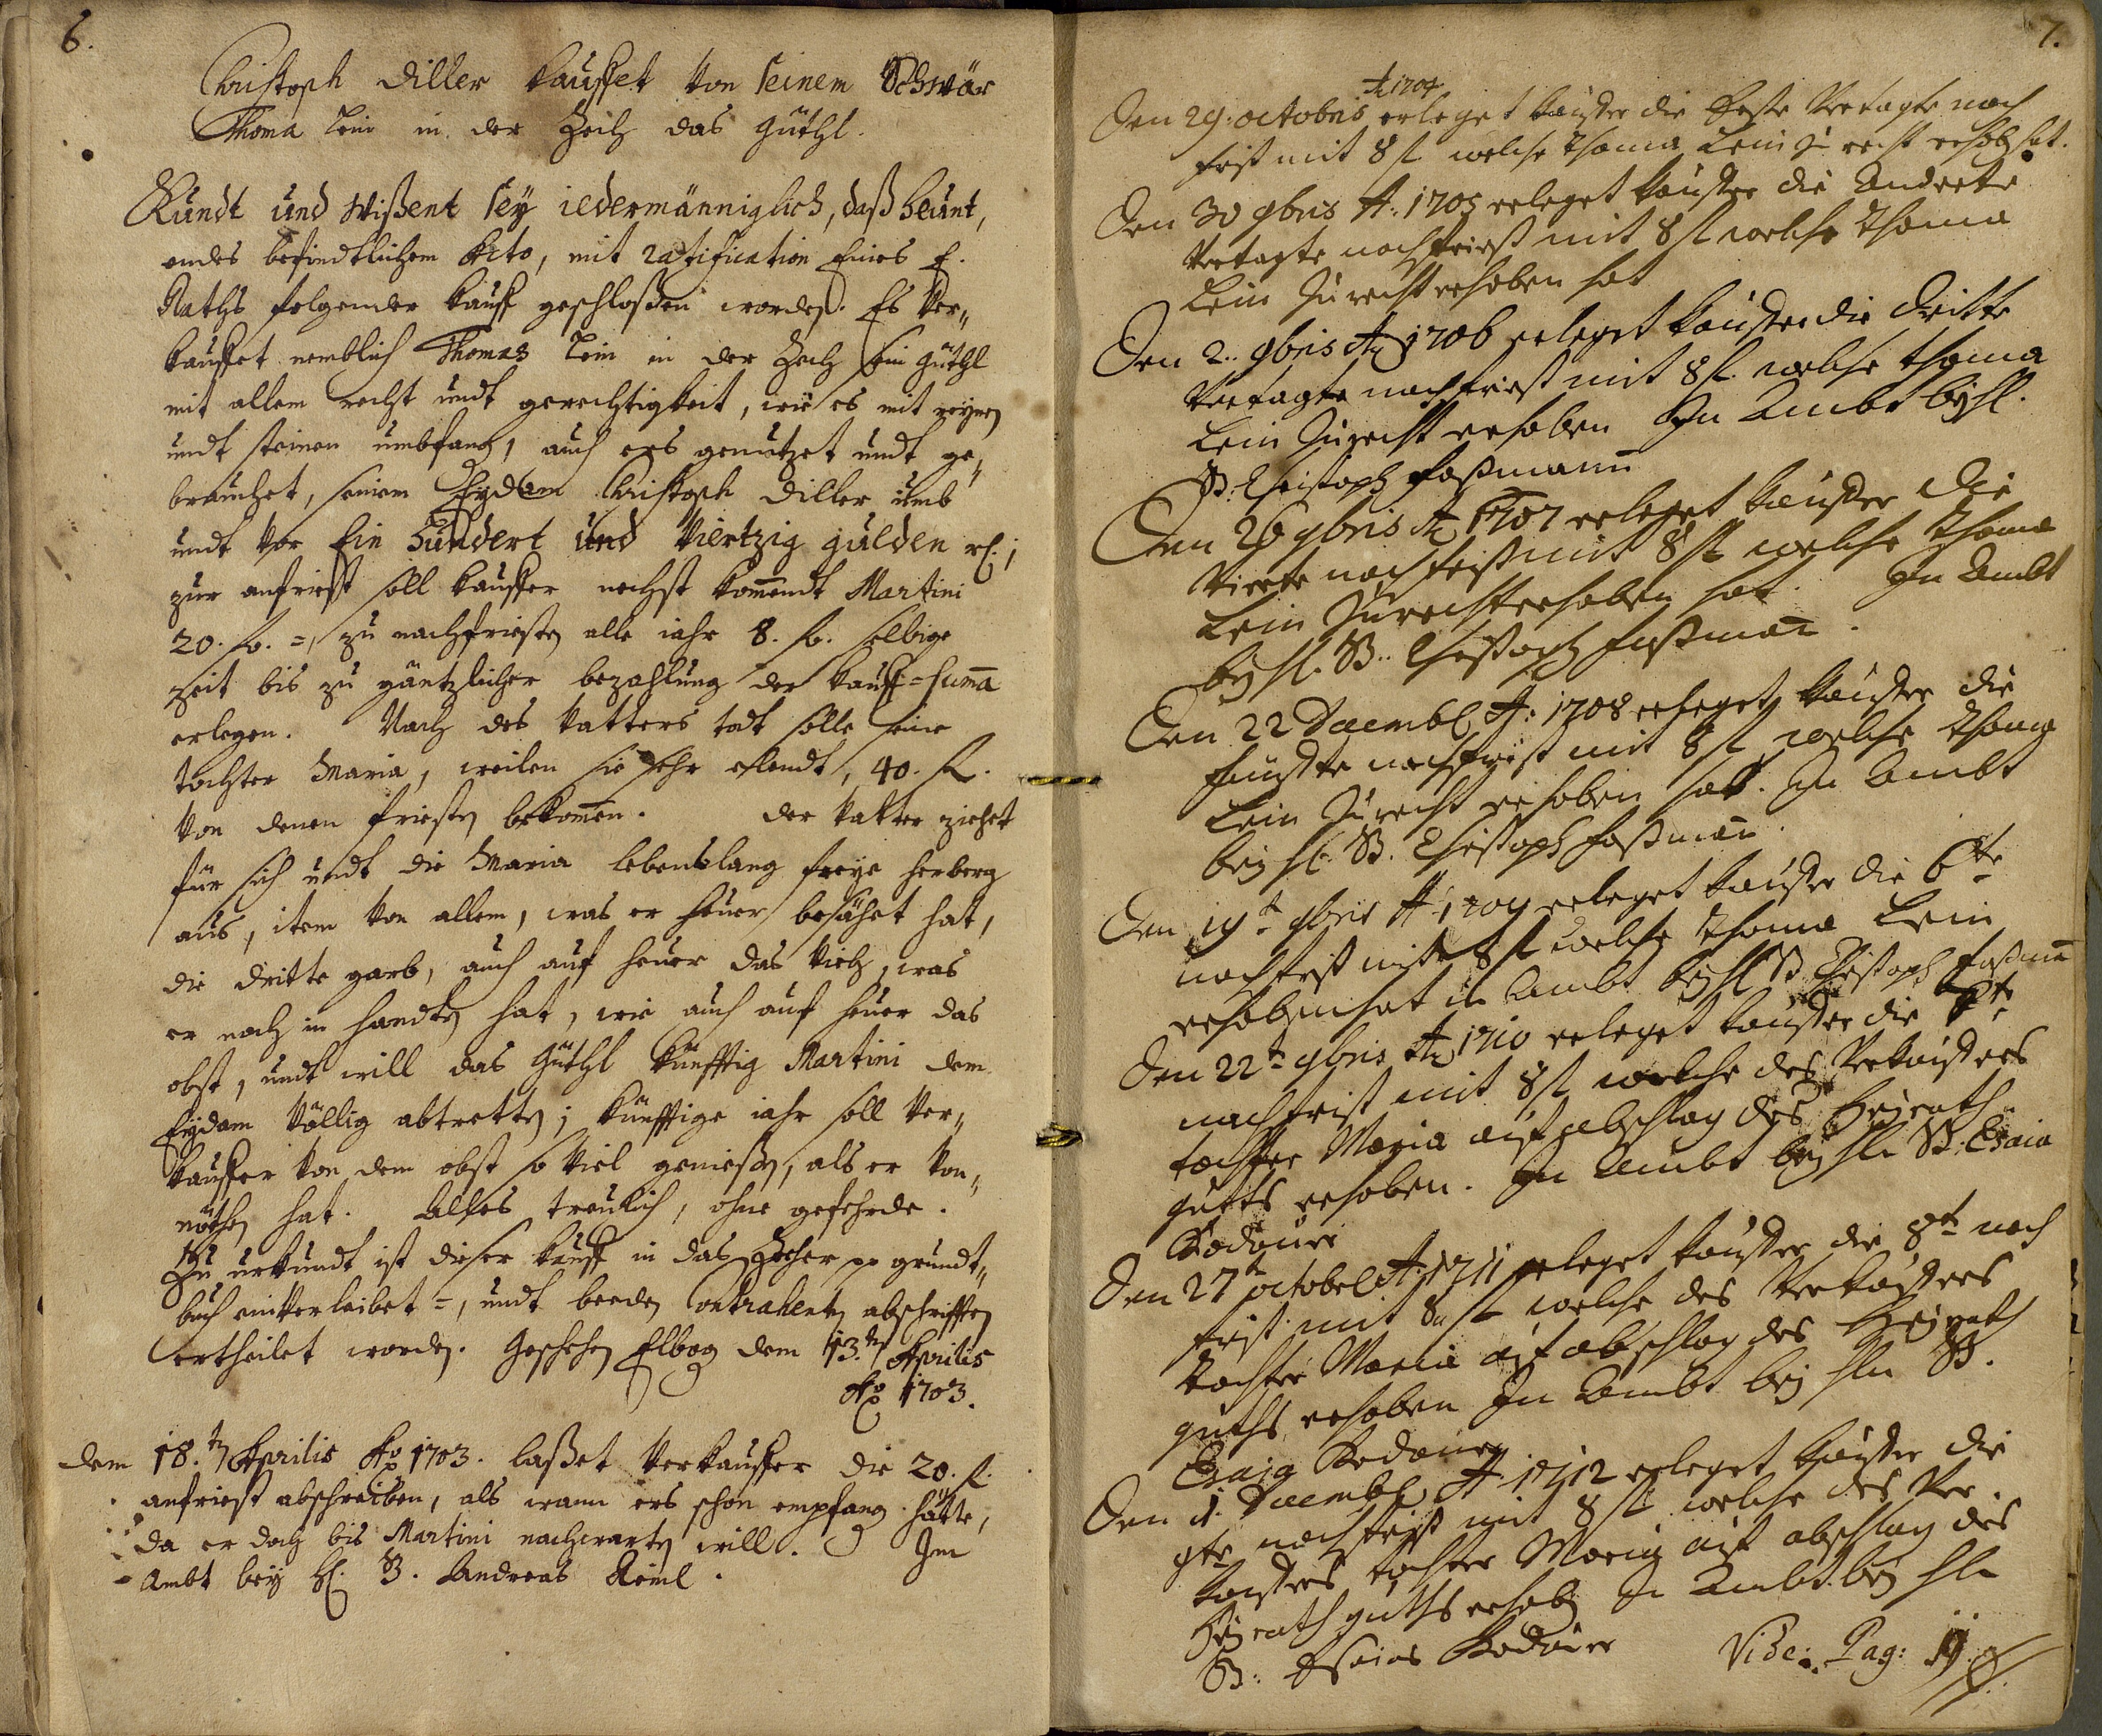 6.
Christoph Diller kauffet von seinem Schwär
Thoma Lein in der Zech das güthl.
Kundt und Wißent sey iedermänniglich, daß heunt,
endes befindtlichem dato, mit ratification Eines E.
Raths folgender kauff geschloßen worden. Es ver„
kauffet nemblich Thomas Lein in der Zech sein güthl
mit allem recht undt gerechtigkeit, wie es mit reynen
undt steinen umbfang, auch ers genutzet undt ge„
brauchet, seinem Eydam Christoph Diller umb
undt vor Ein Hundert und Viertzig gulden rh.;
zur anfriest soll kauffer nechst kommendt Martini
20. fl. =, zu nachfriesten alle iahr 8. fl. selbige
zeit bis zu gäntzlicher bezahlung der kauff=summa
erlegen. Nach des vatters todt solle seine
tochter Maria, weilen sie sehr elendt, 40. fl.
von denen friesten bekommen. der vatter ziehet
für sich undt die Maria lebenslang freye herberg
aus, item von allem, was er heuer besähet hat,
die dritte garb, auch auf heuer das vieh, was
er noch in handten hat, wie auch auf heuer das
obst, undt will das güthl künfftig Martini dem
Eydam völlig abtretten; künfftige iahr soll ver„
kauffer von dem obst so viel genießen, als er von„
nöthen hat. Alles treulich, ohne gefehrde.
Zu urkundt ist dieser kauff in das Zecher grundt„
buch einverleibet =, undt beeden Contrahenten abschrifften
ertheilet worden. Geschehen Elbogen dem 13.ten Aprilis
Ao 1703.
dem 18.ten Aprilis Ao 1703. laßet verkauffer die 20. fl.
anfriest abschreiben, als wann ers schon empfang. hätte,
da er doch bis Martini nachwarten will. Im
Ambt bey H. B. Andreas Reinl.
7.
A 1704
Den 29: octobris erleget kauffer die Erste vertagte nach
frist mit 8 fl welche Thoma Lein zu recht erhoben hat.
Den 30 9bris A: 1705 erleget kauffer die Anderte
vertagte nachfriest mit 8 fl welche Thoma
Lein zu recht erhoben hat
Den 2.. 9bris A 1706 erleget kauffer die dritte
vertagte nachfriest mit 8 fl. welche Thoma
Lein zu recht erhoben In Ambt bey hl.
B: Christoph Foßmann
Den 26 9bris A 1707 erleget kauffer die
vierte nachfrist mit 8 fl welche Thoma
Lein zu recht erhoben hat. In Ambt
bey hl. B.. Christoph Foßman.
Den 22 Decembl A: 1708 erleget kauffer die
funffte nachfrist mit 8 fl welche Thoma
Lein zu recht erhoben hat. In Ambt
bey hl. B. Christoph Foßman.
Den 19t 9bris A 1709 erleget kauffer die 6te
nachfrist mit 8 fl welche Thoma Lein
erhoben hat in Ambt bey hl B. Christoph Foßman
Den 22t 9bris A 1710 erleget kauffer die
nachfrist mit 8 fl welche des verkauffers
tochter Maria auf abschlag des Heirath„
gutts erhoben. In Ambt bey hln B. Esaia
Bodauer
Den 27t octobel A: 1711 erleget kauffer die 8te nach
frist mit 8 fl welche des verkauffers
tochter Maria auf abschlag des Heyrath
guths erhoben In Ambt bey hln B.
Esaia Bodauer
Den 1. Decembl A 1712 erleget kauffer die
9te nachfrist mit 8 fl welche des ver„
kauffers tochter Maria auf abschlag des
Heyrathguths erhob. In Ambt bey hln
B: Esaias Bodauer Vide: Pag: